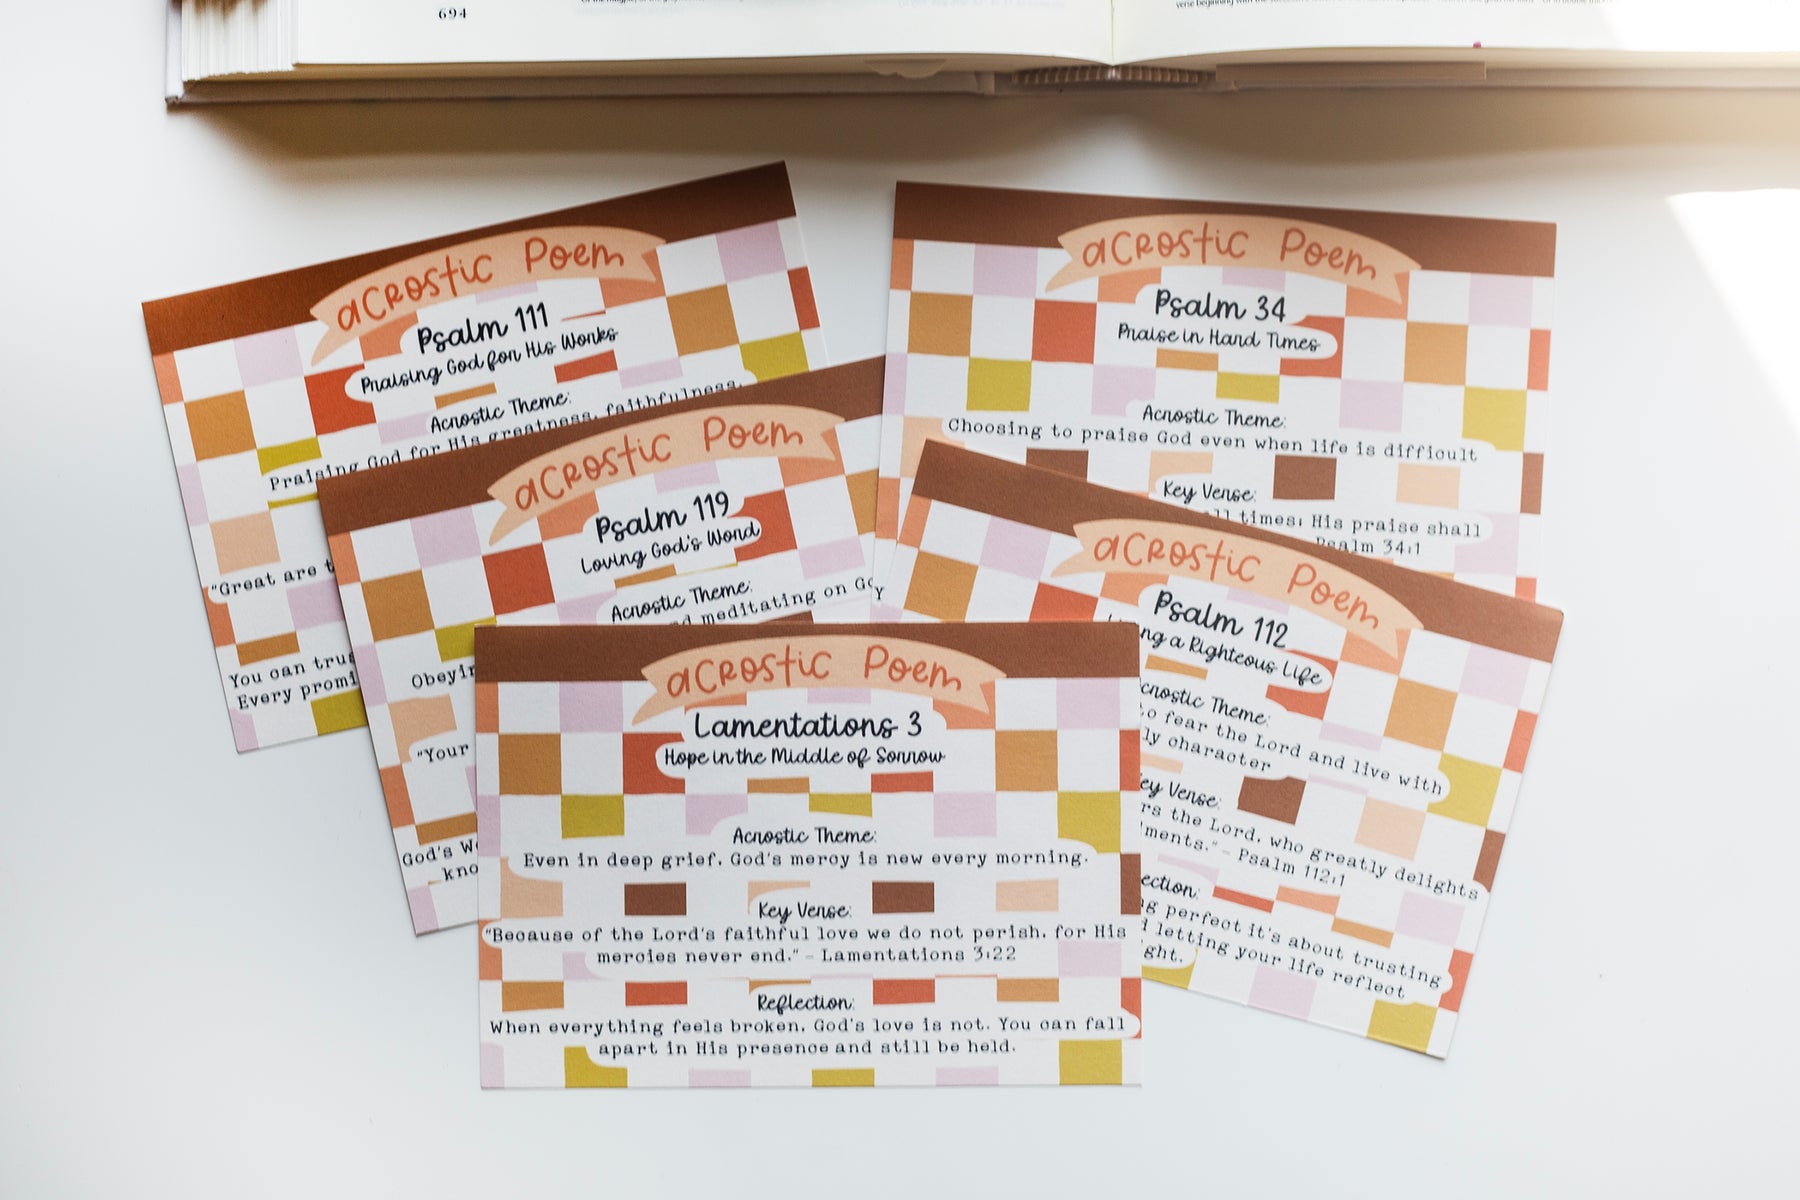 694
acrostic Poem
Psalm 111
Praising God for His Works
Acrostic Theme:
Praising God for His greatness, faithfulness,
"Great are
You can
Every
acrostic Poem
Psalm 119
Loving God's Word
Acrostic Theme:
meditating on
"Your
God's
acrostic Poem
Psalm 34
Praise in Hard Times
Acrostic Theme:
Choosing to praise God even when life is difficult
Key Verse:
all times; His praise shall
Psalm 34:1
acrostic Poem
Psalm 112
a Righteous Life
Acrostic Theme:
to fear the Lord and live with
character
Key Verse:
the Lord, who greatly delights
Psalm 112:1
perfect it's about trusting
letting your life reflect
acrostic Poem
Lamentations 3
Hope in the Middle of Sorrow
Acrostic Theme:
Even in deep grief, God's mercy is new every morning.
Key Verse:
"Because of the Lord's faithful love we do not perish, for His
mercies never end." - Lamentations 3:22
Reflection:
When everything feels broken, God's love is not. You can fall
apart in His presence and still be held.